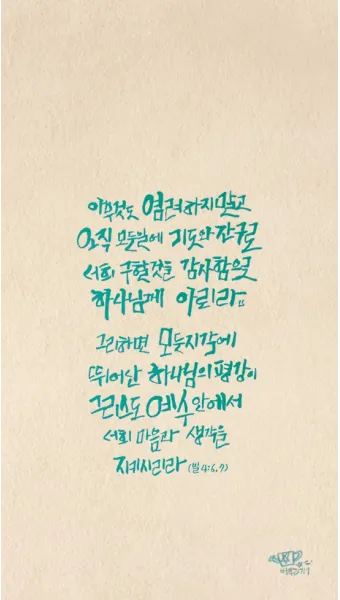 아무것도 염려하지말고
오직 모든일에 기도와 간구로
너희 구할것을 감사함으로
하나님께 아뢰라
그리하면 모든지각에
뛰어난 하나님의평강이
그리스도 예수 안에서
너희 마음과 생각을
지키시리라 (빌 4:6.7)